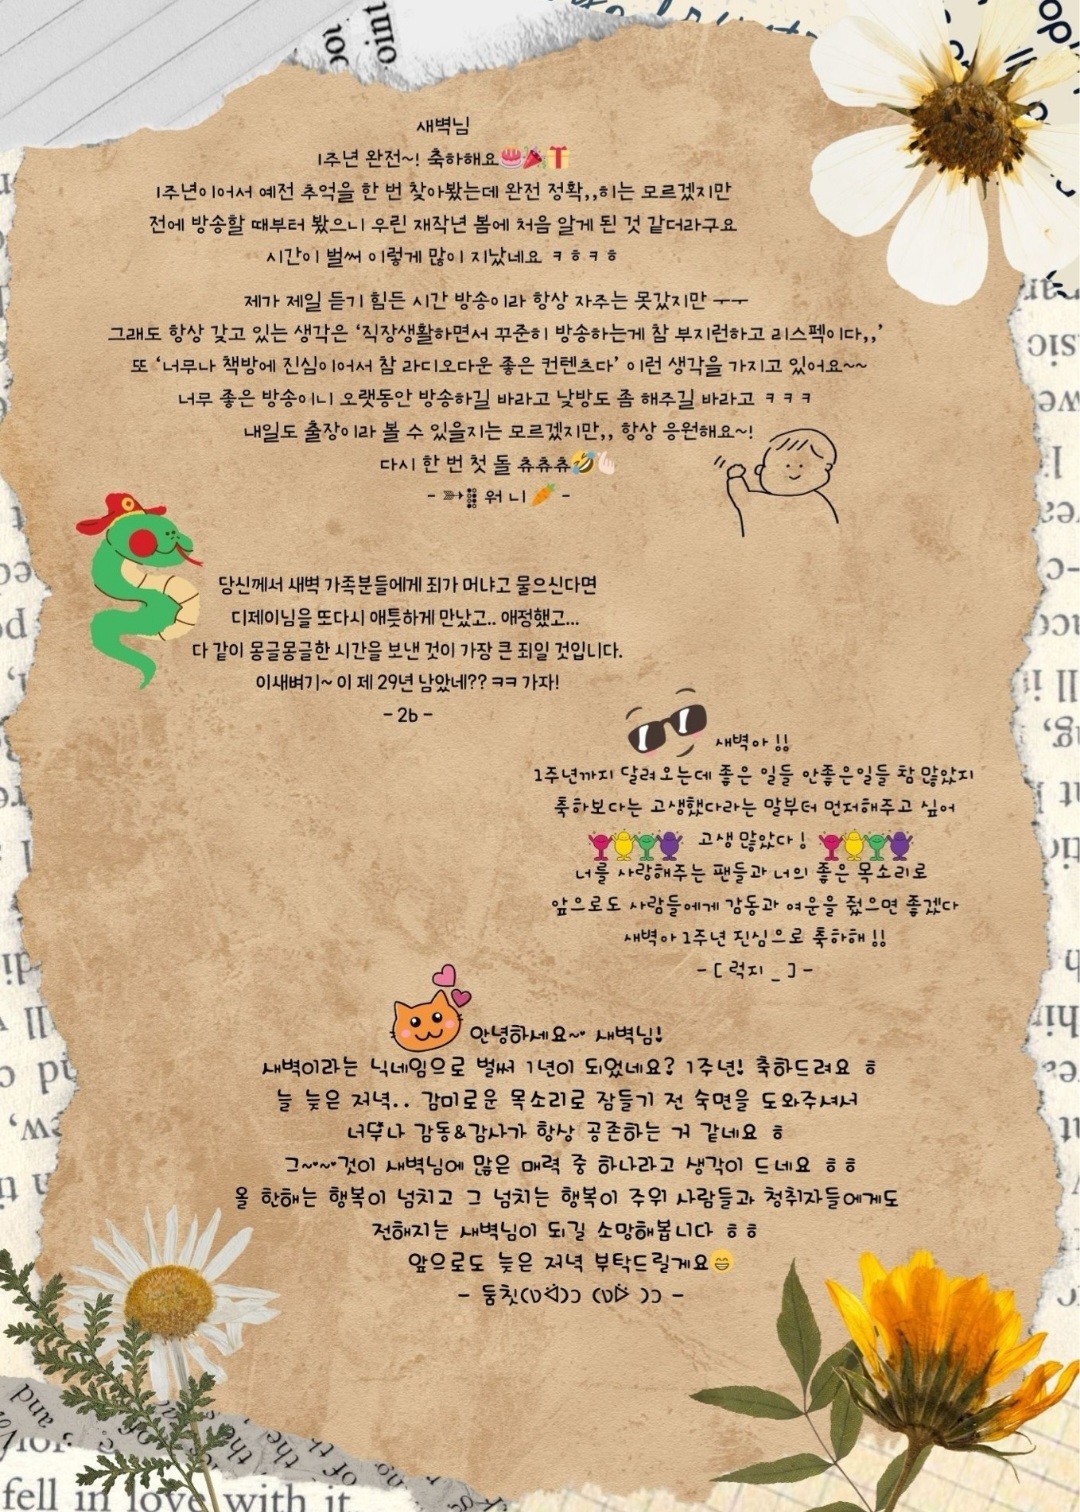 새벽님
1주년 완전~! 축하해요🎂🎉🎁
1주년이어서 예전 추억을 한 번 찾아봤는데 완전 정확,,히는 모르겠지만
전에 방송할 때부터 봤으니 우린 재작년 봄에 처음 알게 된 것 같더라구요
시간이 벌써 이렇게 많이 지났네요 ㅋㅎㅋㅎ
제가 제일 듣기 힘든 시간 방송이라 항상 자주는 못갔지만 ㅜㅜ
그래도 항상 갖고 있는 생각은 '직장생활하면서 꾸준히 방송하는게 참 부지런하고 리스펙이다,,'
또 '너무나 책방에 진심이어서 참 라디오다운 좋은 컨텐츠다' 이런 생각을 가지고 있어요~~
너무 좋은 방송이니 오랫동안 방송하길 바라고 낮방도 좀 해주길 바라고 ㅋㅋㅋ
내일도 출장이라 볼 수 있을지는 모르겠지만,, 항상 응원해요~!
다시 한 번 첫 돌 츄츄츄🤣🫰🏻
- ➳ 워니🥕 -
당신께서 새벽 가족분들에게 죄가 머냐고 물으신다면
디제이님을 또다시 애틋하게 만났고.. 애정했고...
다 같이 몽글몽글한 시간을 보낸 것이 가장 큰 죄일 것입니다.
이새벼기~ 이 제 29년 남았네?? ㅋㅋ 가자!
- 2b -
새벽아 !!
1주년까지 달려오는데 좋은 일들 안좋은일들 참 많았지
축하보다는 고생했다라는 말부터 먼저해주고 싶어
고생 많았다 !
너를 사랑해주는 팬들과 너의 좋은 목소리로
앞으로도 사람들에게 감동과 여운을 줬으면 좋겠다
새벽아 1주년 진심으로 축하해 !!
- [ 럭지 _ ] -
안녕하세요~ 새벽님!
새벽이라는 닉네임으로 벌써 1년이 되었네요? 1주년! 축하드려요 ㅎ
늘 늦은 저녁.. 감미로운 목소리로 잠들기 전 숙면을 도와주셔서
너무나 감동&감사가 항상 공존하는 거 같네요 ㅎ
그~~~것이 새벽님에 많은 매력 중 하나라고 생각이 드네요 ㅎㅎ
올 한해는 행복이 넘치고 그 넘치는 행복이 주위 사람들과 청취자들에게도
전해지는 새벽님이 되길 소망해봅니다 ㅎㅎ
앞으로도 늦은 저녁 부탁드릴게요😄
- 둠칫(ʋᐛ)ↄ (ʋᐖ )ↄ -
fell in love with it